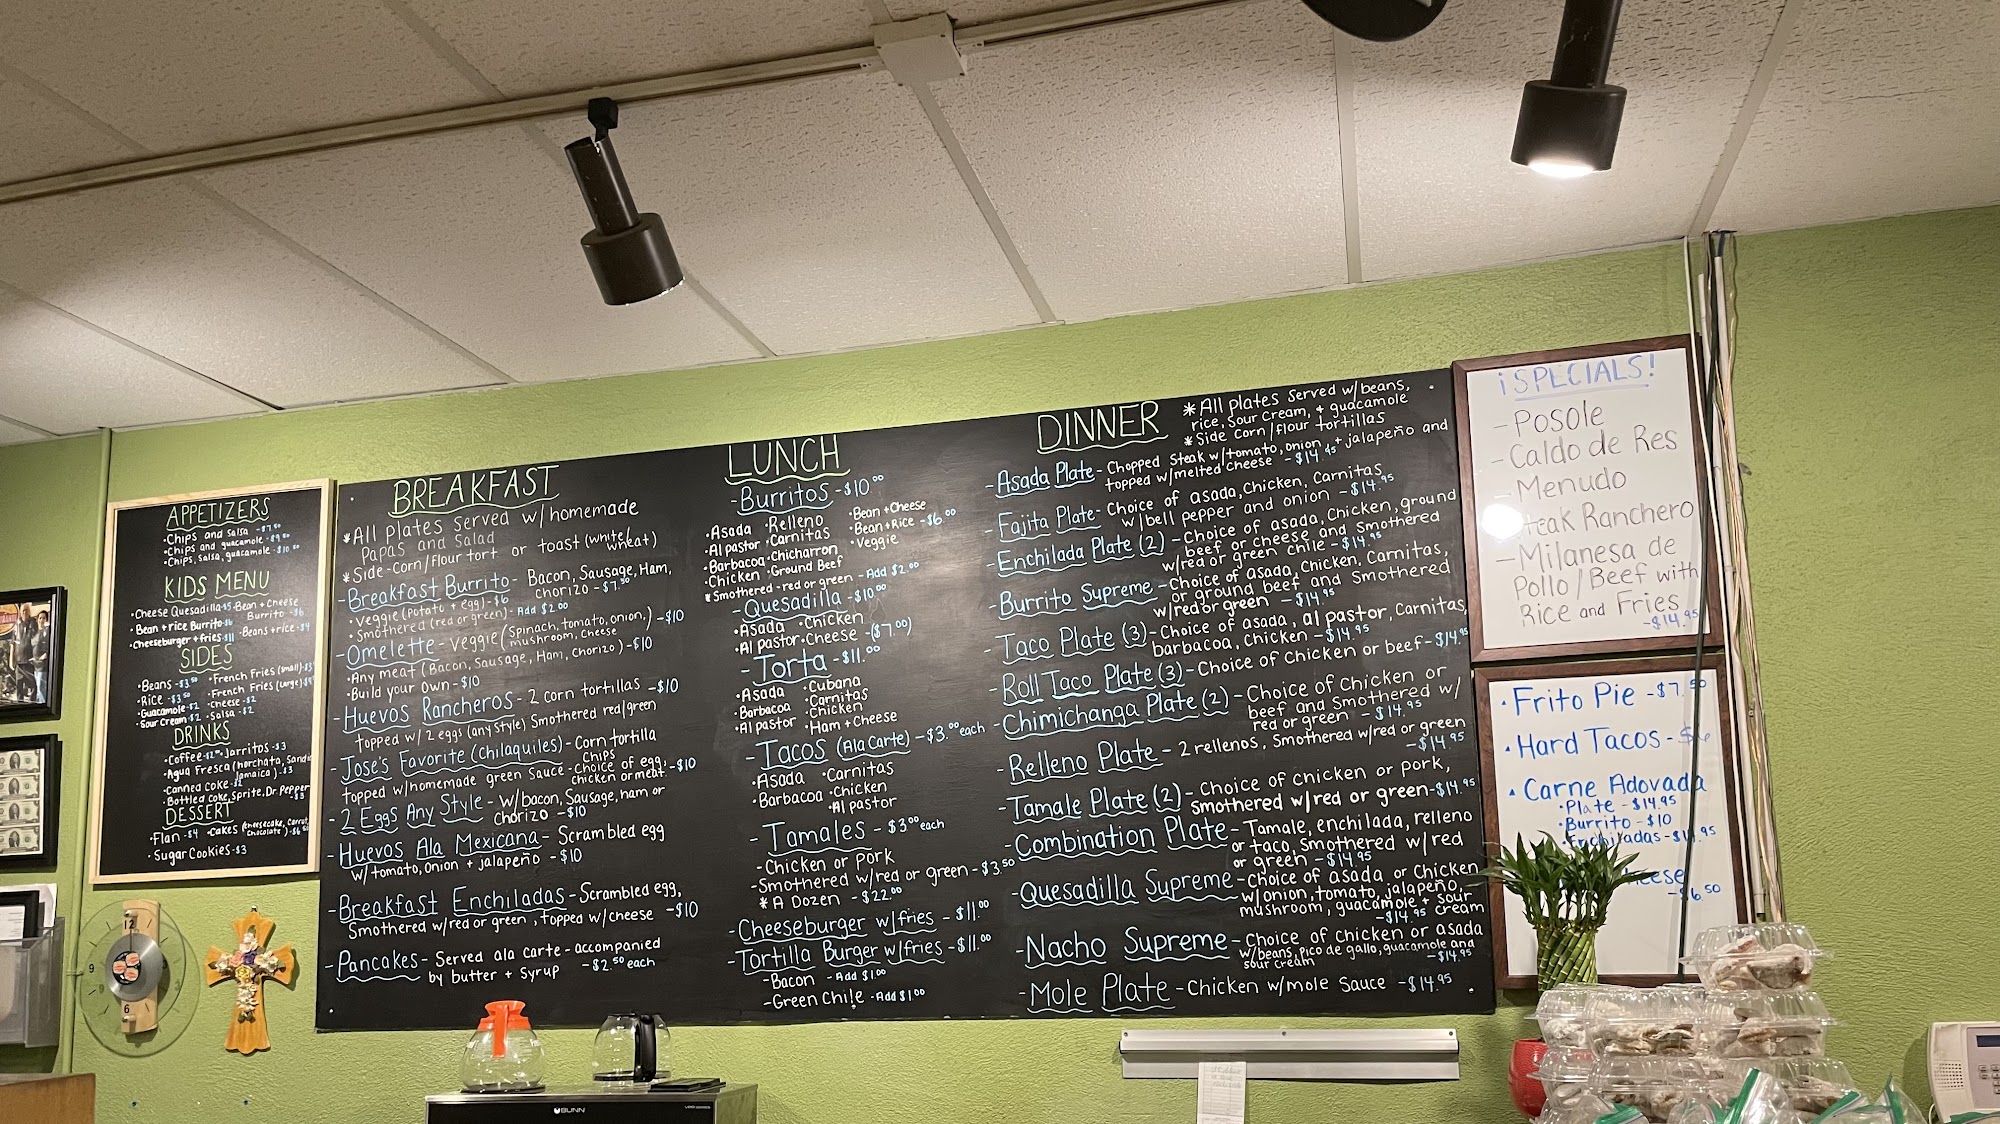 APPETIZERS
•Chips and salsa -$7.50
•Chips and guacamole -$9.50
•Chips, salsa, guacamole -$10.50
KIDS MENU
•Cheese Quesadilla-$5 •Bean + Cheese
Burrito -$6
•Bean + rice Burrito-$6
•Cheeseburger + fries-$11 •Beans + rice -$4
SIDES
•Beans -$3.50 •French Fries (small)-$3
•Rice -$3.50 •French Fries (large)
•Guacamole-$2 •Cheese -$2
•Sour Cream-$2 •Salsa -$2
DRINKS
•Coffee •Jarritos -$3
•Agua Fresca (horchata, Sandia
Jamaica) -$3
•Canned Coke
•Bottled Coke, Sprite, Dr. Pepper
-$3
DESSERT
•Flan -$4 •Cakes (Cheesecake, Carrot,
Chocolate)
•Sugar Cookies -$3
BREAKFAST
*All Plates Served w/homemade
Papas and Salad
*Side-Corn/Flour tort or toast (white/
wheat)
-Breakfast Burrito- Bacon, Sausage, Ham,
Chorizo -$7.50
•Veggie (Potato + egg) -$6
•Smothered (red or green)- Add $2.00
-Omelette - Veggie (Spinach, tomato, onion,
mushroom, cheese) -$10
•Any meat (Bacon, Sausage, Ham, Chorizo) -$10
•Build your Own -$10
-Huevos Rancheros - 2 corn tortillas -$10
topped w/ 2 eggs (any Style) Smothered red/green
-Jose's Favorite (Chilaquiles) - Corn tortilla
Chips
topped w/homemade green Sauce - choice of egg,
chicken or meat -$10
-2 Eggs Any Style - w/bacon, Sausage, ham or
chorizo -$10
-Huevos Ala Mexicana - Scrambled egg
w/tomato, onion + jalapeño -$10
-Breakfast Enchiladas - Scrambled egg,
Smothered w/red or green, topped w/cheese -$10
-Pancakes - Served ala carte - accompanied
by butter + Syrup -$2.50 each
LUNCH
-Burritos -$10.00
•Asada •Relleno •Bean + Cheese
•Al pastor •Carnitas •Bean + Rice -$6.00
•Barbacoa •Chicharron •Veggie
•Chicken •Ground Beef
*Smothered -red or green - Add $2.00
-Quesadilla -$10.00
•Asada •Chicken
•Al pastor •Cheese -($7.00)
-Torta -$11.00
•Asada •Cubana
•Barbacoa •Carnitas
•Al pastor •Chicken
•Ham + Cheese
-Tacos (Ala Carte) -$3.00 each
•Asada •Carnitas
•Barbacoa •Chicken
•Al pastor
-Tamales - $3.00 each
-Chicken or pork
-Smothered w/red or green -$3.50
*A Dozen -$22.00
-Cheeseburger w/fries - $11.00
-Tortilla Burger w/fries -$11.00
-Bacon -Add $1.00
-Green Chile -Add $1.00
DINNER
*All Plates Served w/beans,
rice, Sour Cream, + guacamole
*Side Corn/flour tortillas
-Asada Plate - Chopped Steak w/tomato, onion, + jalapeño and
topped w/melted cheese -$14.95
-Fajita Plate - Choice of asada, Chicken, Carnitas
w/bell pepper and onion -$14.95
-Enchilada Plate (2) - Choice of asada, Chicken, ground
beef or cheese and Smothered
w/red or green chile -$14.95
-Burrito Supreme - Choice of asada, Chicken, Carnitas,
or ground beef and Smothered
w/red or green -$14.95
-Taco Plate (3) - Choice of asada, al pastor, Carnitas,
barbacoa, chicken -$14.95
-Roll Taco Plate (3) - Choice of Chicken or beef -$14.95
-Chimichanga Plate (2) - Choice of Chicken or
beef and Smothered w/
red or green -$14.95
-Relleno Plate - 2 rellenos, Smothered w/red or green
-$14.95
-Tamale Plate (2) - Choice of Chicken or pork,
Smothered w/red or green -$14.95
-Combination Plate - Tamale, enchilada, relleno
or taco, Smothered w/red
or green -$14.95
-Quesadilla Supreme - Choice of asada or Chicken
w/onion, tomato, jalapeño,
mushroom, guacamole + Sour
Cream -$14.95
-Nacho Supreme - Choice of Chicken or asada
w/beans, pico de gallo, guacamole and
sour cream -$14.95
-Mole Plate - Chicken w/mole Sauce -$14.95
¡SPECIALS!
-Posole
-Caldo de Res
-Menudo
Ranchero
-Milanesa de
Pollo/Beef with
Rice and Fries
-$14.95
•Frito Pie -$7.50
•Hard Tacos -$6
•Carne Adovada
•Plate -$14.95
•Burrito -$10
•Enchiladas -$14.95
-$6.50
12
9
6
BUNN